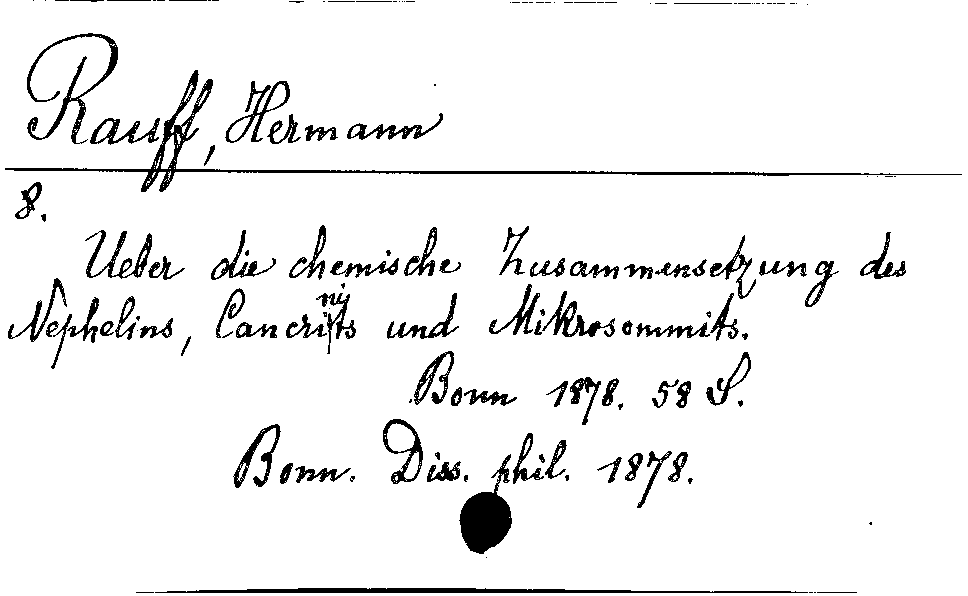 Rauff, Hermann
8.
Ueber die chemische Zusammensetzung des
Nephelins, Cancrinits und Mikrosommits.
Bonn 1878. 58 S.
Bonn. Diss. phil. 1878.